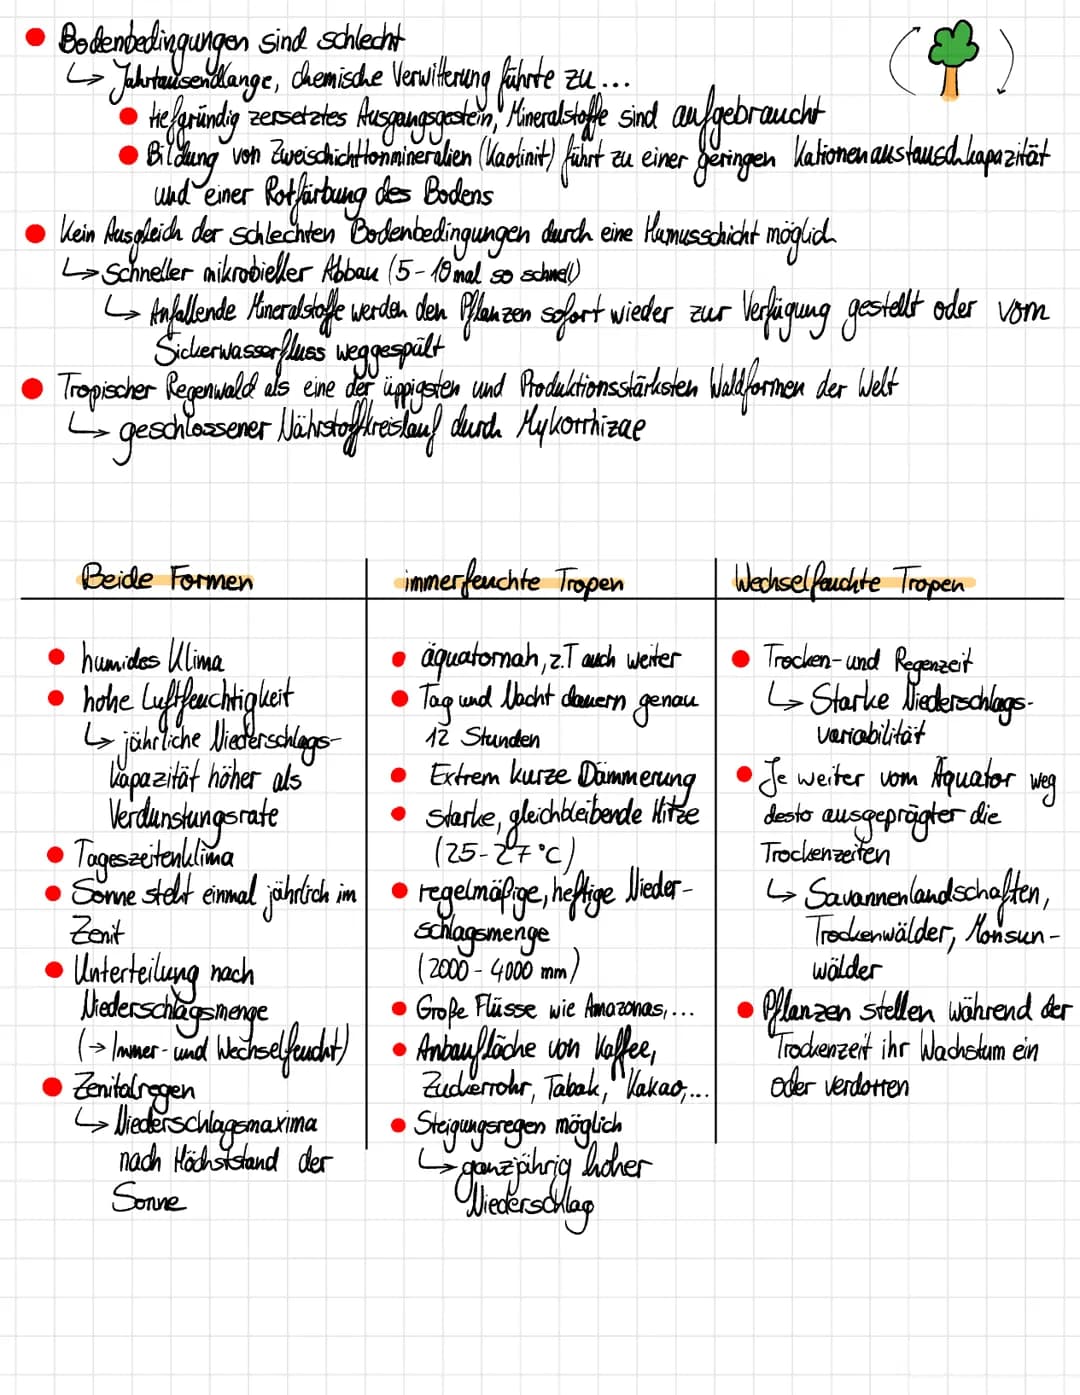 Bodenbedingungen sind schlecht
↳ Jahrtausendlange, chemische Verwitterung führte zu...
tiefgründig zersetztes Ausgangsgestein, Mineralstoffe sind aufgebraucht
Bildung von Zweischichttonmineralien (Kaolinit) führt zu einer geringen Kationenaustauschkapazität
und einer Rotfärbung des Bodens
Kein Ausgleich der schlechten Bodenbedingungen durch eine Humusschicht möglich
↳ Schneller mikrobieller Abbau (5-10 mal so schnell)
↳ Anfallende Mineralstoffe werden den Pflanzen sofort wieder zur Verfügung gestellt oder vom
Sickerwasserfluss weggespült
Tropischer Regenwald als eine der üppigsten und Produktionsstärksten Waldformen der Welt
↳ geschlossener Nährstoffkreislauf durch Mykorrhizae
Beide Formen
humides Klima
hohe Luftfeuchtigkeit
↳ jährliche Niederschlags-
kapazität höher als
Verdunstungsrate
Tageszeitenklima
Sonne steht einmal jährlich im
Zenit
Unterteilung nach
Niederschlagsmenge
(→ Immer- und Wechselfeucht)
Zenitalregen
↳ Niederschlagsmaxima
nach Höchststand der
Sonne
immerfeuchte Tropen
äquatornah, z.T auch weiter
Tag und Nacht dauern genau
12 Stunden
Extrem kurze Dämmerung
starke, gleichbleibende Hitze
(25-27°C)
regelmäßige, heftige Nieder-
schlagsmenge
(2000 - 4000 mm)
Große Flüsse wie Amazonas,...
Anbaufläche von Kaffee,
Zuckerrohr, Tabak, Kakao,...
Steigungsregen möglich
↳ ganzjährig hoher
Niederschlag
Wechselfeuchte Tropen
Trocken- und Regenzeit
↳ Starke Niederschlags-
variabilität
Je weiter vom Äquator weg
desto ausgeprägter die
Trockenzeiten
↳ Savannenlandschaften,
Trockenwälder, Monsun-
wälder
Pflanzen stellen während der
Trockenzeit ihr Wachstum ein
oder verdorren